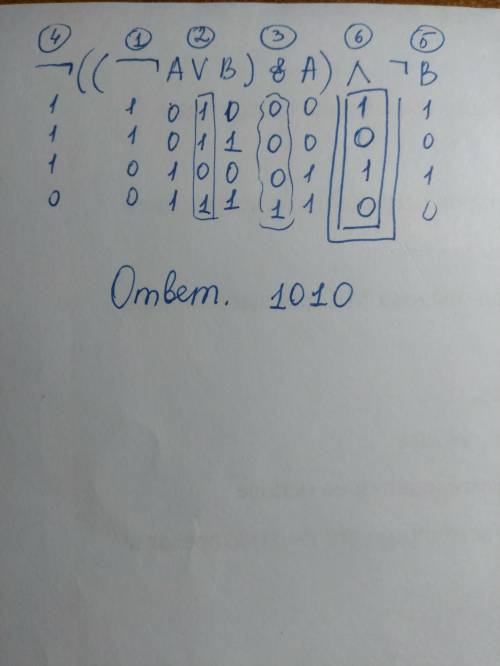 ④ ① ② ③ ⑥ ⑤
¬((¬A∨B)&A)∧¬B
1 1 0 1 0 0 0 1 1
1 1 0 1 1 0 0 0 0
1 0 1 0 0 0 1 1 1
0 0 1 1 1 1 1 0 0
Ответ. 1010